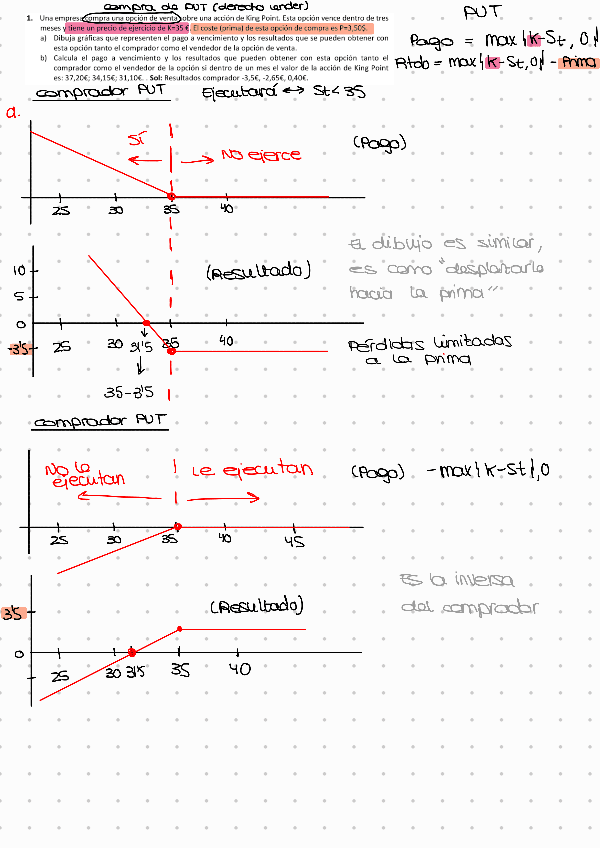 compra de PUT (derecho vender)
1. Una empresa compra una opción de venta sobre una acción de King Point. Esta opción vence dentro de tres
meses y tiene un precio de ejercicio de K=35 €. El coste (prima) de esta opción de compra es P=3,50$.
a) Dibuja gráficas que representen el pago a vencimiento y los resultados que se pueden obtener con
esta opción tanto el comprador como el vendedor de la opción de venta.
b) Calcula el pago a vencimiento y los resultados que pueden obtener con esta opción tanto el
comprador como el vendedor de la opción si dentro de un mes el valor de la acción de King Point
es: 37,20€; 34,15€; 31,10€. . Sol: Resultados comprador -3,5€, -2,65€, 0,40€.
PUT
Pago = max{K-St, 0}
Rtdo = max{K-St, 0} - Prima
comprador PUT
Ejecutará ↔ St<35
a.
SÍ
NO ejerce
(Pago)
25 30 35 40
10
5
0
-3'5
(Resultado)
25 30 31'5 35 40
35-3'5
El dibujo es similar,
es como "desplazarlo
hacia la prima"
Pérdidas limitadas
a la prima
comprador PUT
No la
ejecutan
Le ejecutan
(Pago) -max{K-St},0
25 30 35 40 45
3'5
0
(Resultado)
25 30 31'5 35 40
Es la inversa
del comprador